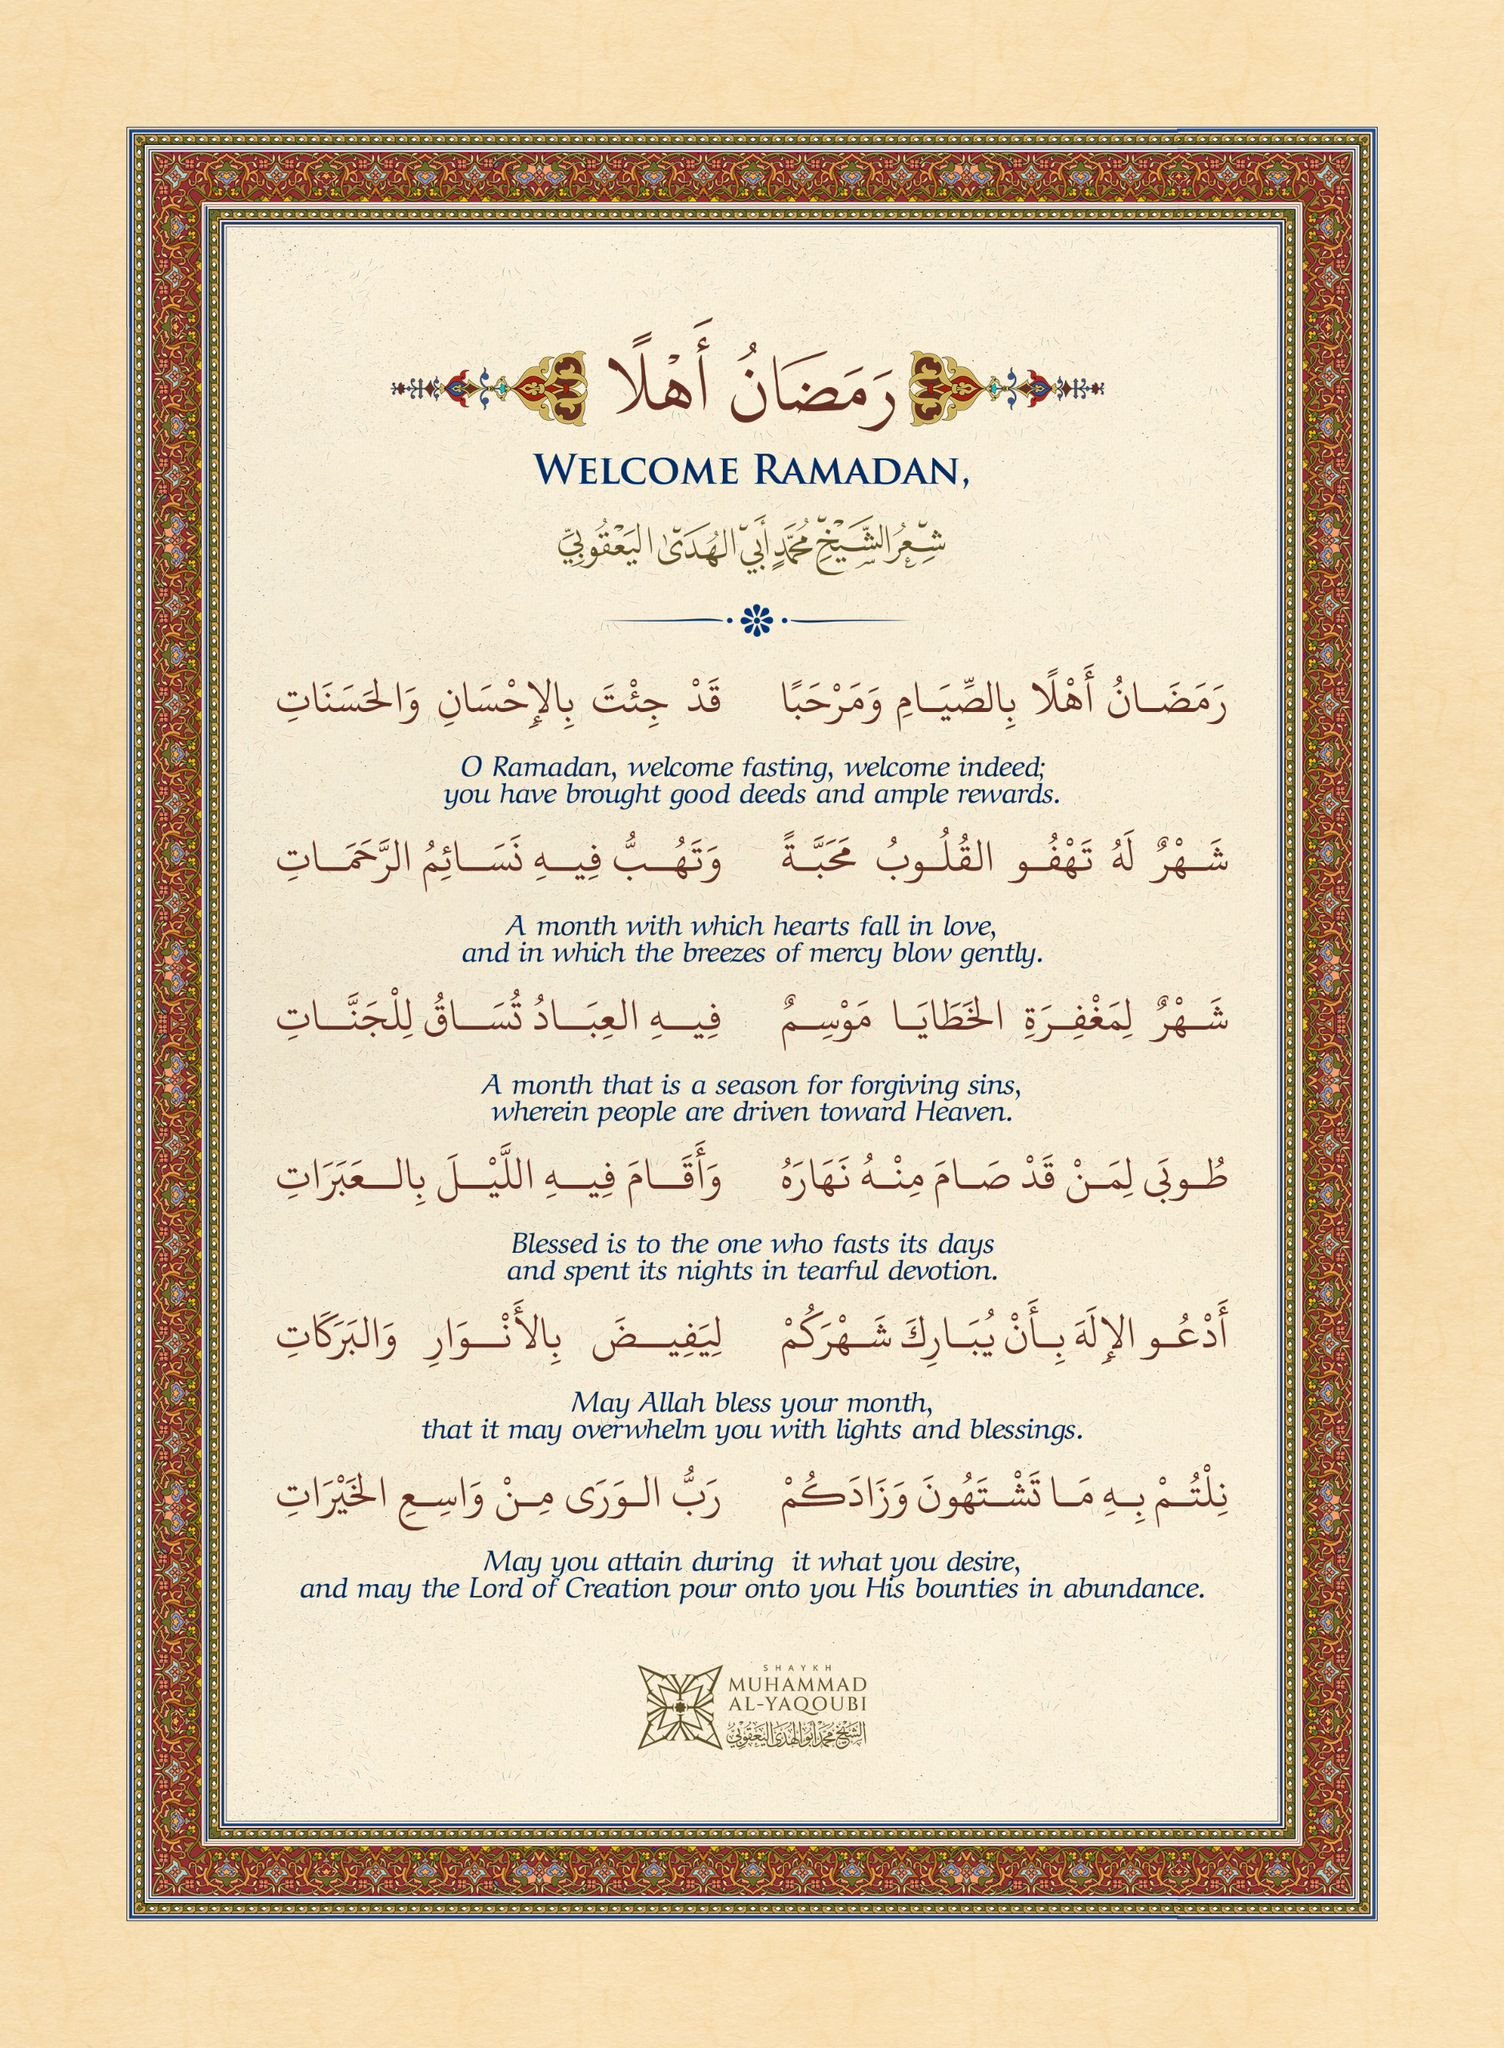 رَمَضَانُ أَهْلًا
WELCOME RAMADAN,
شِعْرُ الشَّيْخِ مُحَمَّدٍ أَبِي الهُدَى اليَعْقُوبِيِّ
رَمَضَانُ أَهْلًا بِالصِّيَامِ وَمَرْحَبًا قَدْ جِئْتَ بِالإِحْسَانِ وَالحَسَنَاتِ
O Ramadan, welcome fasting, welcome indeed;
you have brought good deeds and ample rewards.
شَهْرٌ لَهُ تَهْفُو القُلُوبُ مَحَبَّةً وَتَهُبُّ فِيهِ نَسَائِمُ الرَّحَمَاتِ
A month with which hearts fall in love,
and in which the breezes of mercy blow gently.
شَهْرٌ لِمَغْفِرَةِ الخَطَايَا مَوْسِمٌ فِيهِ العِبَادُ تُسَاقُ لِلْجَنَّاتِ
A month that is a season for forgiving sins,
wherein people are driven toward Heaven.
طُوبَى لِمَنْ قَدْ صَامَ مِنْهُ نَهَارَهُ وَأَقَامَ فِيهِ اللَّيْلَ بِالعَبَرَاتِ
Blessed is to the one who fasts its days
and spent its nights in tearful devotion.
أَدْعُو الإِلَهَ بِأَنْ يُبَارِكَ شَهْرَكُمْ لِيَفِيضَ بِالأَنْوَارِ وَالبَرَكَاتِ
May Allah bless your month,
that it may overwhelm you with lights and blessings.
نِلْتُمْ بِهِ مَا تَشْتَهُونَ وَزَادَكُمْ رَبُّ الوَرَى مِنْ وَاسِعِ الخَيْرَاتِ
May you attain during it what you desire,
and may the Lord of Creation pour onto you His bounties in abundance.
SHAYKH
MUHAMMAD
AL-YAQOUBI
الشيخ محمد أبو الهدى اليعقوبي